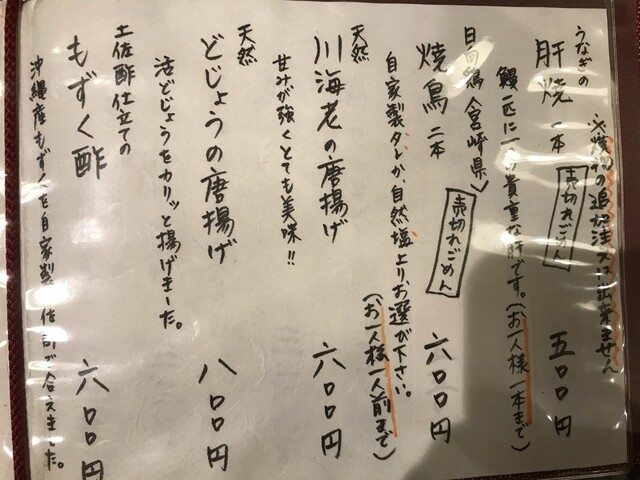 ※焼物の追加注文は出来ません
うなぎの
肝焼 一本 売切れごめん 五00円
鰻一匹に一つの貴重な肝です。(お一人様一本まで)
日向鶏(宮崎県)
焼鳥 二本 売切れごめん 六00円
自家製タレか、自然塩よりお選び下さい。
(お一人様一人前まで)
天然
川海老の唐揚げ 六00円
甘みが強くとても美味!!
天然
どじょうの唐揚げ 八00円
活どじょうをカリッと揚げました。
土佐酢仕立ての
もずく酢 六00円
沖縄産もずくを自家製土佐酢で合えました。